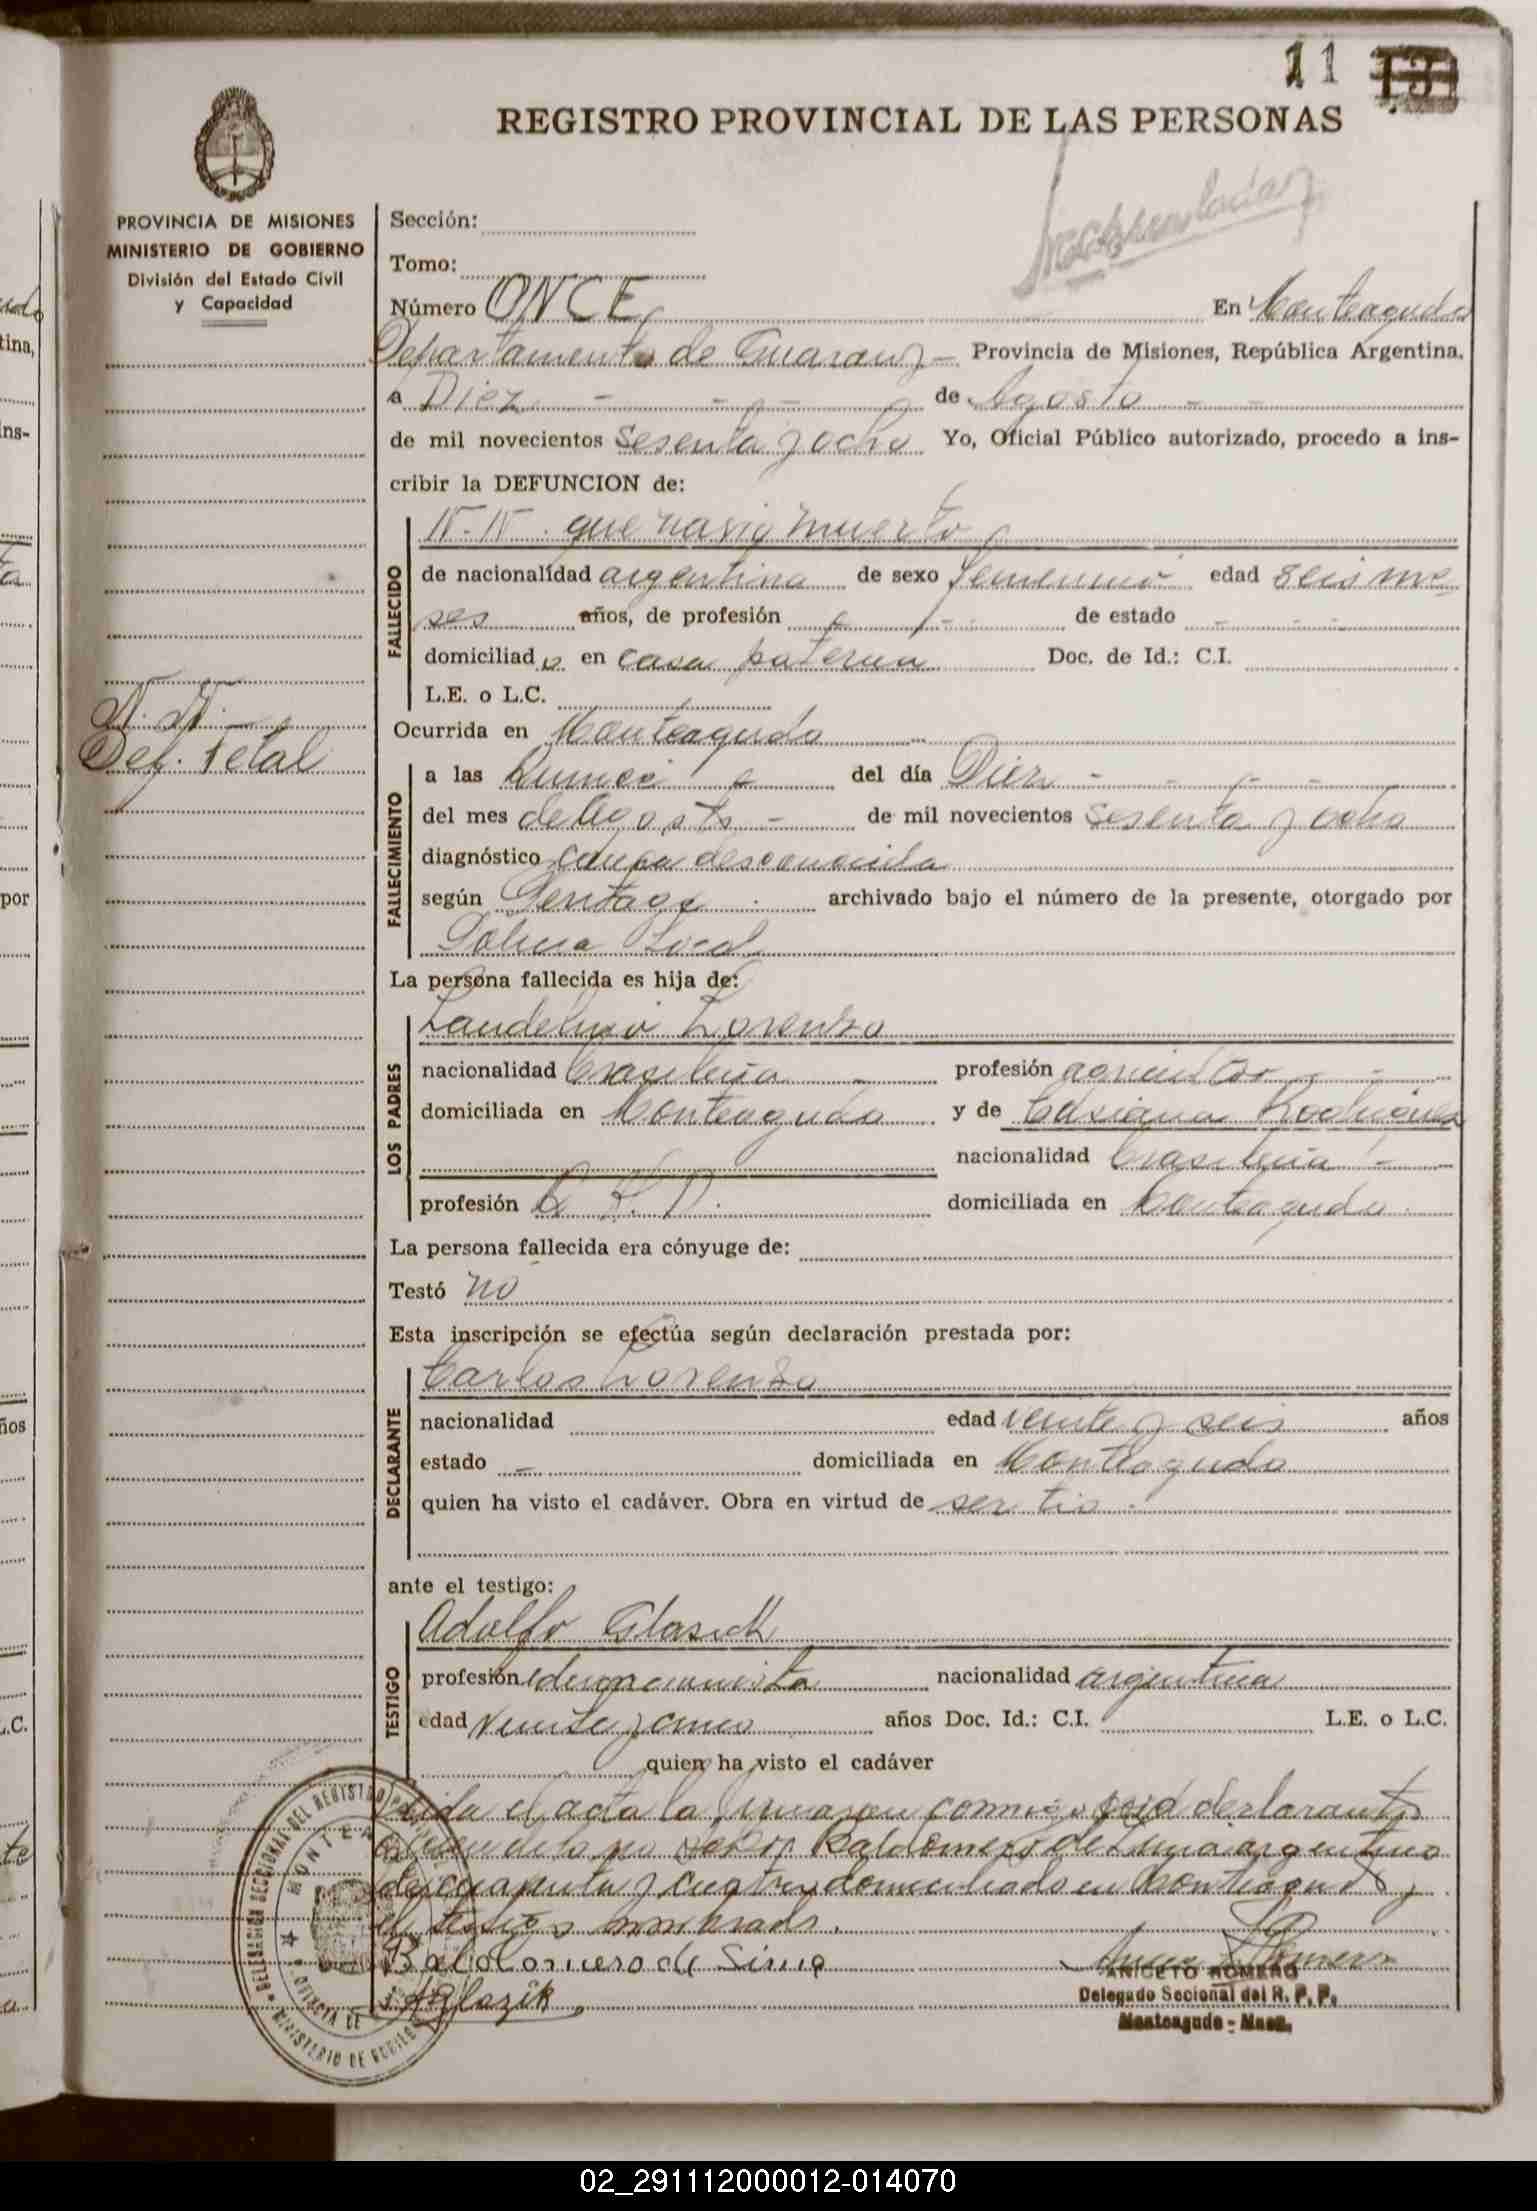 11 13
REGISTRO PROVINCIAL DE LAS PERSONAS
PROVINCIA DE MISIONES
MINISTERIO DE GOBIERNO
División del Estado Civil
y Capacidad
Sección:
Tomo:
Número ONCE En Monteagudo
Departamento de Guaraný Provincia de Misiones, República Argentina.
a Diez - - - de Agosto - -
de mil novecientos sesenta y ocho Yo, Oficial Público autorizado, procedo a ins-
cribir la DEFUNCION de:
N.N. que nasio muerto
FALLECIDO
de nacionalidad argentina de sexo femenino edad seis me
ses años, de profesión - de estado - - -
domiciliado en casa paterna Doc. de Id.: C.I.
L.E. o L.C.
N. N. -
Def. Fetal
Ocurrida en Monteagudo
FALLECIMIENTO
a las del día Diez - - - -
del mes de Agosto - de mil novecientos sesenta y ocho
diagnóstico causa desconocida
según archivado bajo el número de la presente, otorgado por
Policia Local
La persona fallecida es hija de:
LOS PADRES
Laudelino Lorenzo
nacionalidad brasileña - profesión agricultor - -
domiciliada en Monteagudo y de Rodriguez
nacionalidad brasileña -
profesión domiciliada en Monteagudo
La persona fallecida era cónyuge de:
Testó no
Esta inscripción se efectúa según declaración prestada por:
DECLARANTE
Carlos Lorenzo
nacionalidad edad veinte y seis años
estado - domiciliada en Monteagudo
quien ha visto el cadáver. Obra en virtud de ser tio -
ante el testigo:
TESTIGO
Adolfo Glasik
profesión nacionalidad argentina
edad años Doc. Id.: C.I. L.E. o L.C.
quien ha visto el cadáver
Leida el acta la firmaron conmigo declarante
Baldomero de Lima argentino
de cuarenta y cuatro domiciliado en Monteagudo y
el testigo nombrado.
Baldomero de Lima
AGlazik
ANICETO ROMERO
Delegado Seccional del R. P. P.
Monteagudo - Mnes.
DELEGACION SECCIONAL DEL REGISTRO
MINISTERIO DE GOBIERNO
02_291112000012-014070